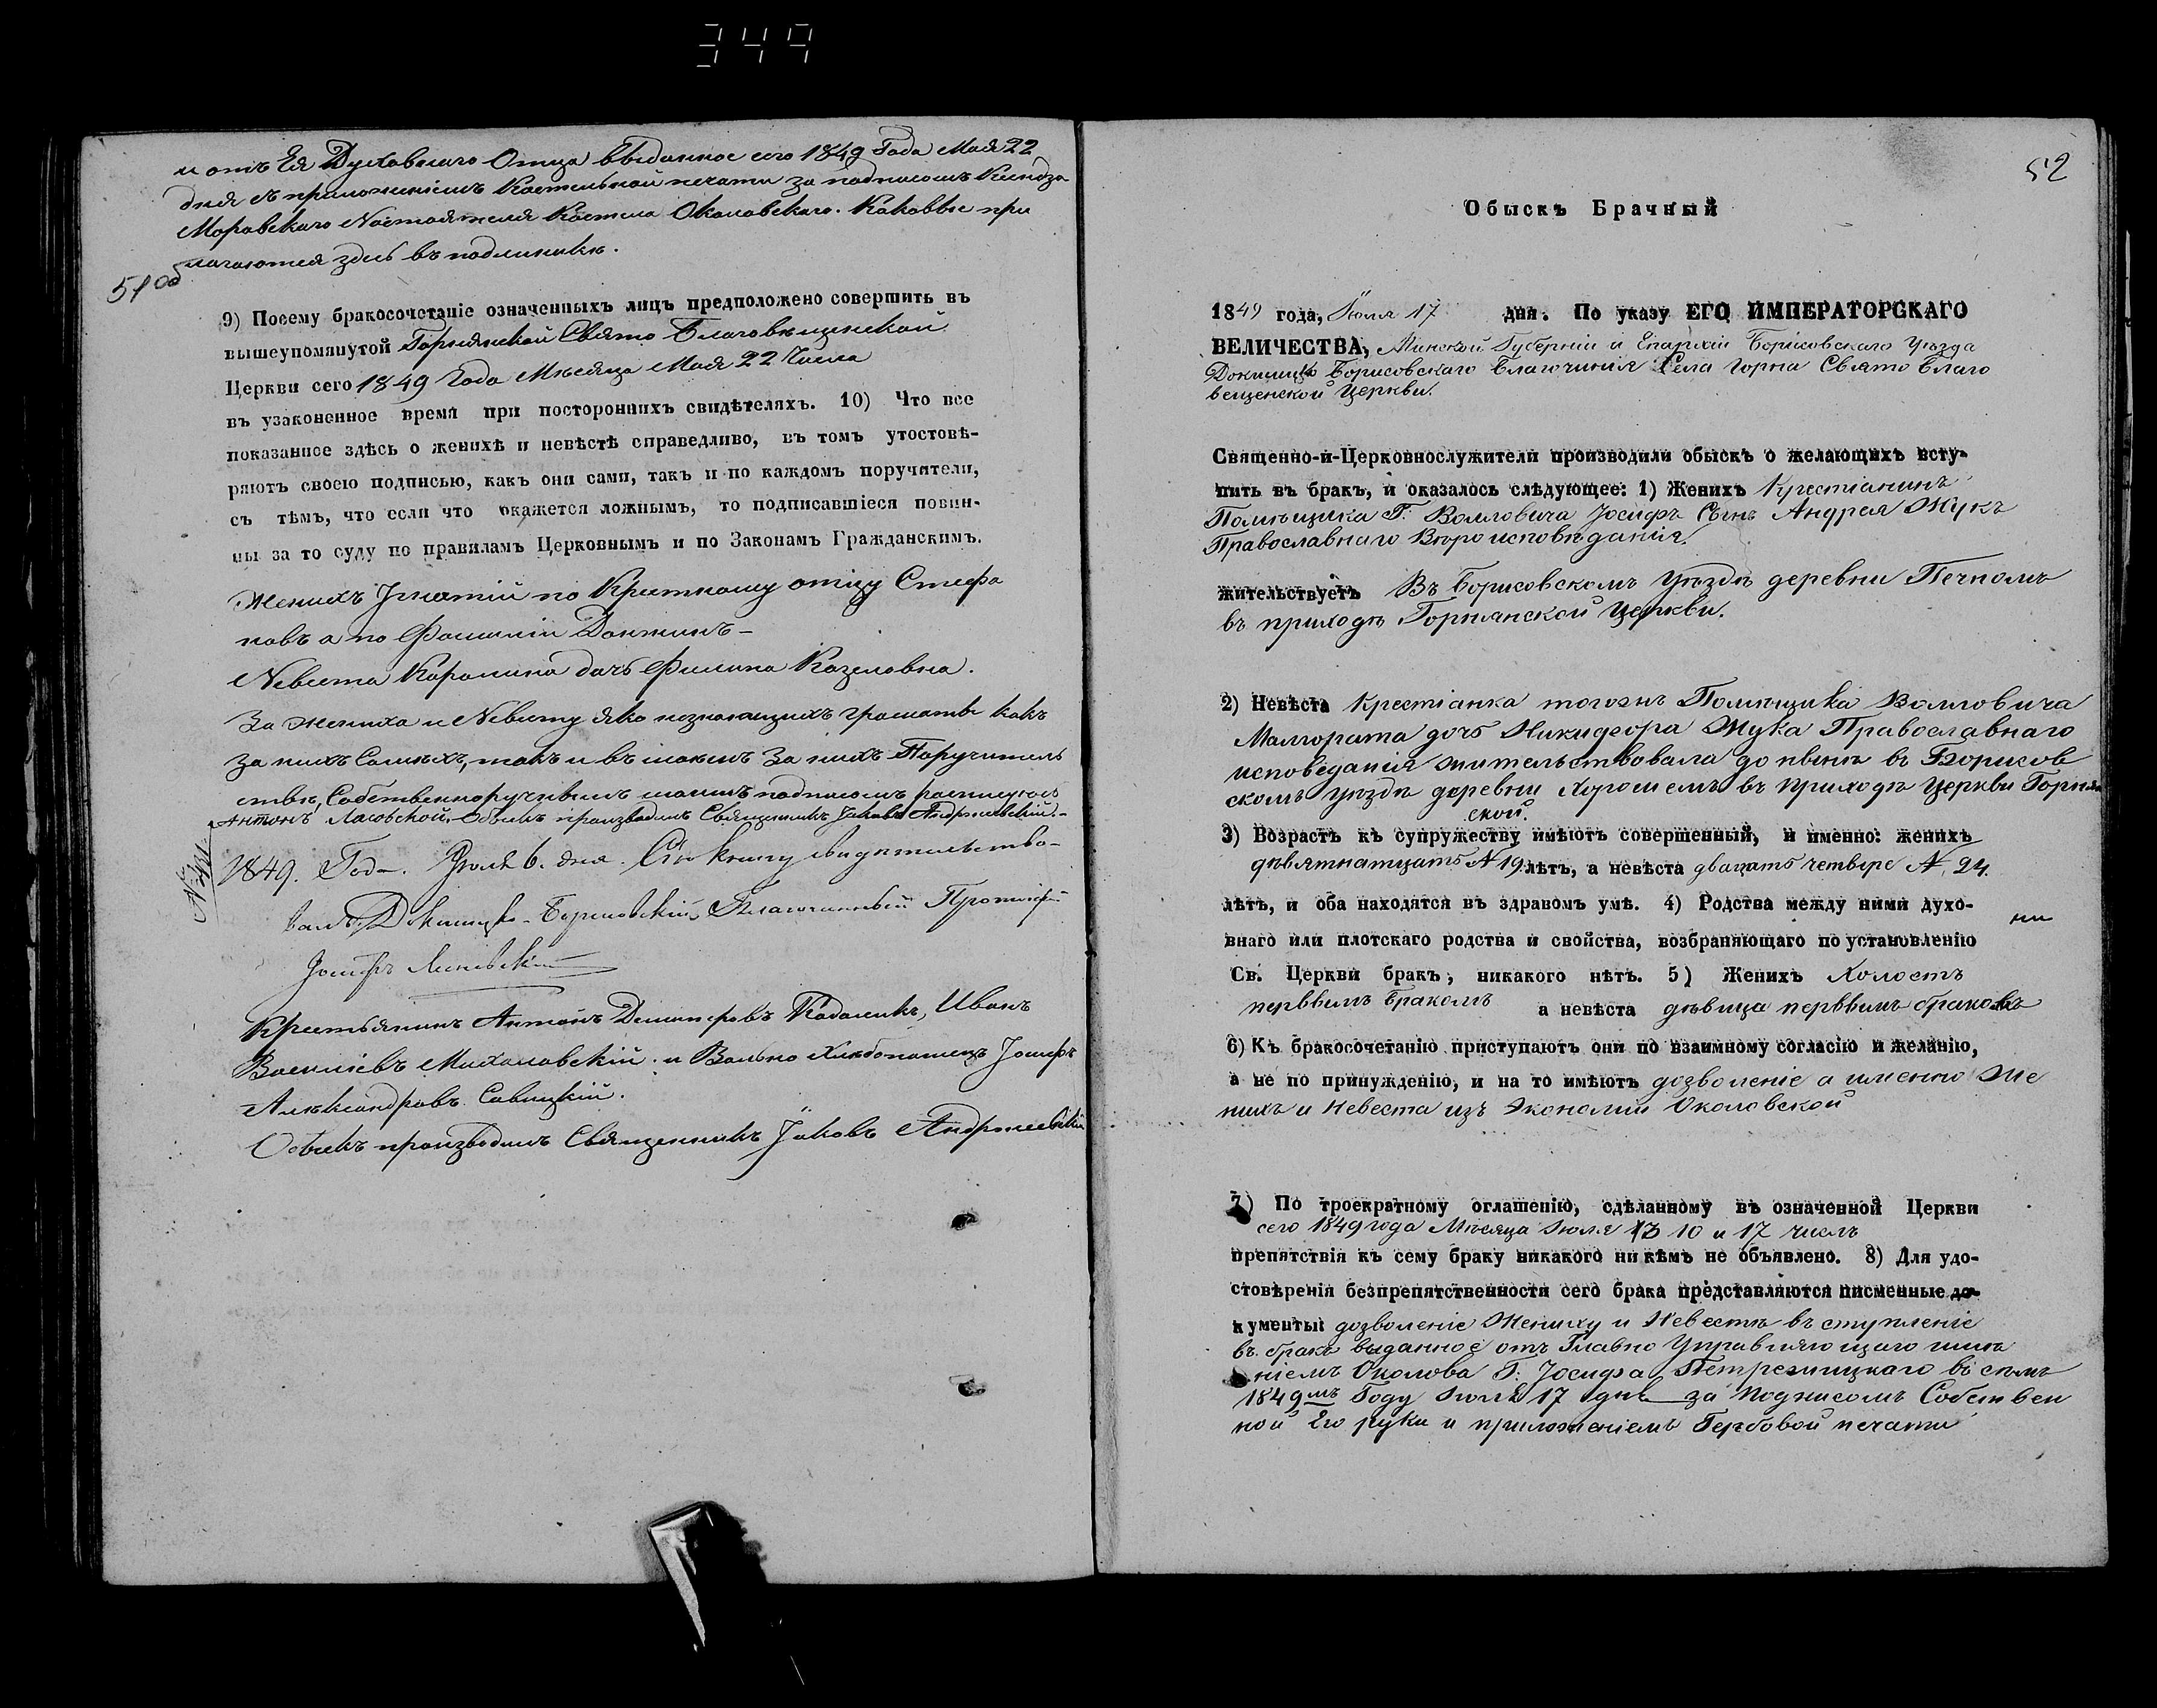 349
и отъ Ея Духовнаго Отца выданное сего 1849 Года Мая 22
дня съ приложеніемъ Костельной печати за подписомъ Ксендза
Моравскаго Настоятеля Костела Околовскаго. Каковые при
лагаются здесь въ подлиннике.
51 об
9) Посему бракосочетаніе означенныхъ лицъ предположено совершить въ
вышеупомянутой Горнянской Свято Благовещенской
Церкви сего 1849 Года Месяца Мая 22 Числа
въ узаконенное время при постороннихъ свидѣтеляхъ. 10) Что все
показанное здѣсь о женихѣ и невѣстѣ справедливо, въ томъ утостовѣ-
ряютъ своею подписью, какъ они сами, такъ и по каждомъ поручители,
съ тѣмъ, что если что окажется ложнымъ, то подписавшіеся повин-
ны за то суду по правиламъ Церковнымъ и по Законамъ Гражданскимъ.
Женихъ Игнатій по Крестному отцу Стефа
новъ а по Фамиліи
Невеста Каролина дочь Филипа Козеловна.
За жениха и Невесту яко незнающихъ грамоты какъ
за нихъ Самихъ, такъ и въ за нихъ Поручитель
стве, Собственноручнымъ моимъ подписомъ росписуюсь
Антонъ Ласовской. Обыскъ производилъ Священникъ Іаковъ Андржеевскій.
1849. Года. Іюля 6. дня. Сію книгу свидетельство-
валъ Докшицко-Борисовскій Благочинный Протоіерей
Іосифъ
Крестьянинъ Антонъ Иванъ
Василіевъ Михаловскій и Вольно Хлебопашецъ Іосифъ
Александровъ Савицкій.
Обыскъ производилъ Священникъ Іаковъ Андржеевскій
52
Обыскъ Брачный
1849 года, Іюля 17 дня. По указу ЕГО ИМПЕРАТОРСКАГО
ВЕЛИЧЕСТВА, Минской Губерніи и Епархіи Борисовскаго Уѣзда
Докшицко Борисовскаго Благочинія Села Горна Свято Благо
вещенской Церкви.
Священно-и-Церковнослужители производили обыскъ о желающихъ всту-
пить въ бракъ, и оказалось слѣдующее: 1) Женихъ Крестіанинъ
Помѣщика Г. Волловича Іосифъ Сынъ Андрея Жукъ
Православнаго Вѣроисповѣданія.
жительствуетъ Въ Борисовскомъ Уѣздѣ деревни Печномъ
въ приходѣ Горнянской Церкви.
2) Невѣста Крестіанка тогожъ Помѣщика Волловича
Малгората дочь Никифора Жука Православнаго
исповеданія жительствовала до нынѣ въ Борисов
скомъ Уѣздѣ деревни Хорошемъ въ приходѣ Церкви Горнян
ской.
3) Возрастъ къ супружеству имѣютъ совершенный, и именно: женихъ
дѣвятнатцать N 19 лѣтъ, а невѣста двацать четыре N. 24.
лѣтъ, и оба находятся въ здравомъ умѣ. 4) Родства между ними духо- ни
внаго или плотскаго родства и свойства, возбраняющаго по установленію
Св. Церкви бракъ, никакого нѣтъ. 5) Женихъ Холостъ
первымъ Бракомъ а невѣста дѣвица первымъ бракомъ
6) Къ бракосочетанію приступаютъ они по взаимному согласію и желанію,
а не по принужденію, и на то имѣютъ дозволеніе а именно Же
нихъ и Невеста изъ Экономіи Околовской
7) По троекратному оглашенію, сдѣланному въ означенной Церкви
сего 1849 года Мѣсяца Іюля 3 10 и 17 числъ
препятствія къ сему браку никакого ни кѣмъ не объявлено. 8) Для удо-
стовѣренія безпрепятственности сего брака представляются писменные до-
кументы: дозволеніе Жениху и Невестѣ въ ступленіе
въ бракъ выданное отъ Главно Управляющаго имѣ
ніемъ Околова Г. Іосифа въ семъ
1849мъ Году Іюля 17 дня за Подписомъ Собствен
ной Его руки и приложеніемъ Гербовой печати